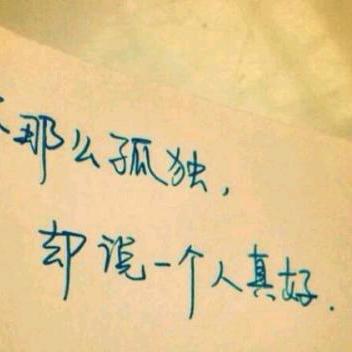 那么孤独，
却说一个人真好.